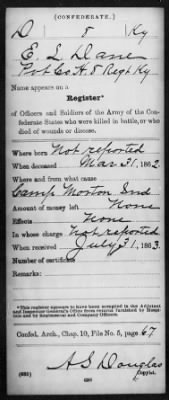 (CONFEDERATE.)
D 8 Ky
E L Dane
Pvt Co H. 8 Regt Ky
Name appears on a
Register*
of Officers and Soldiers of the Army of the Con-
federate States who were killed in battle, or who
died of wounds or disease.
Where born Not reported
When deceased Mar 31, 1862
Where and from what cause
Camp Morton Ind
Amount of money left None
Effects None
In whose charge Not reported
When received July 31, 1863.
Number of certificate
Remarks:
*This register appears to have been compiled in the Adjutant
and Inspector General's Office from returns furnished by Hospi-
tals and by Regimental and Company Officers.
Confed. Arch., Chap. 10, File No. 5, page 67
A S Douglas
Copyist.